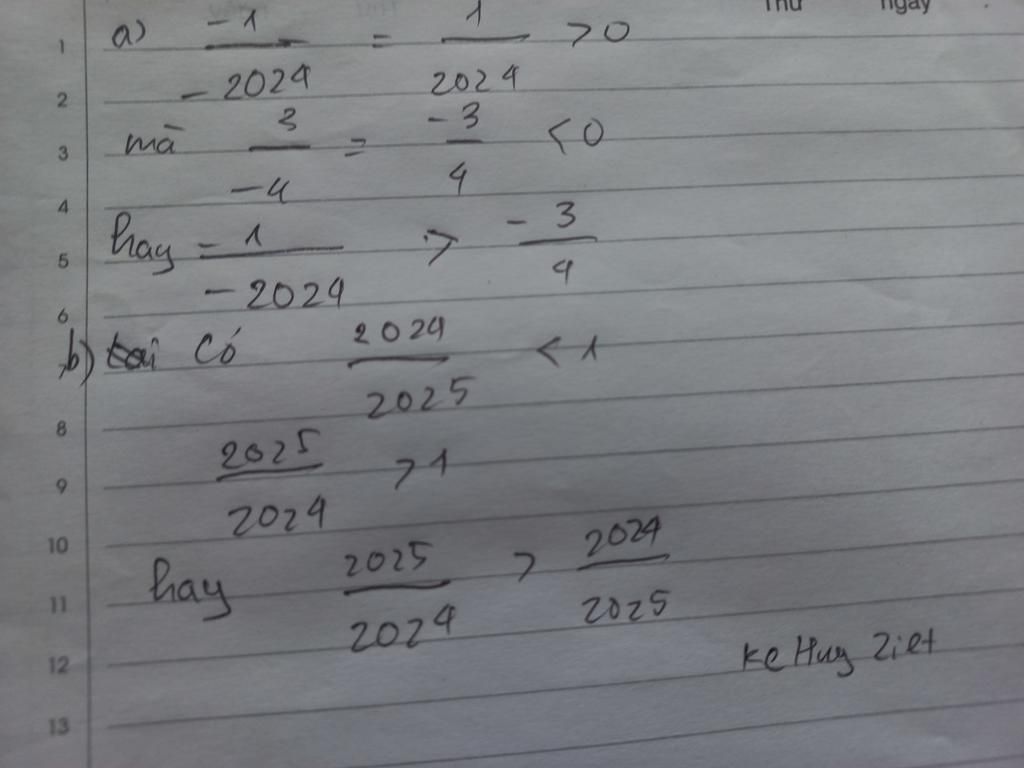 Thứ ngày
1 a) -1/-2024 = 1/2024 >0
2
3 mà 3/-4 = -3/4 <0
4
5 hay -1/-2024 > -3/4
6
b) Có 2024/2025 < 1
8
9 2025/2024 >1
10
11 hay 2025/2024 > 2024/2025
12 Ke Huy Ziet
13